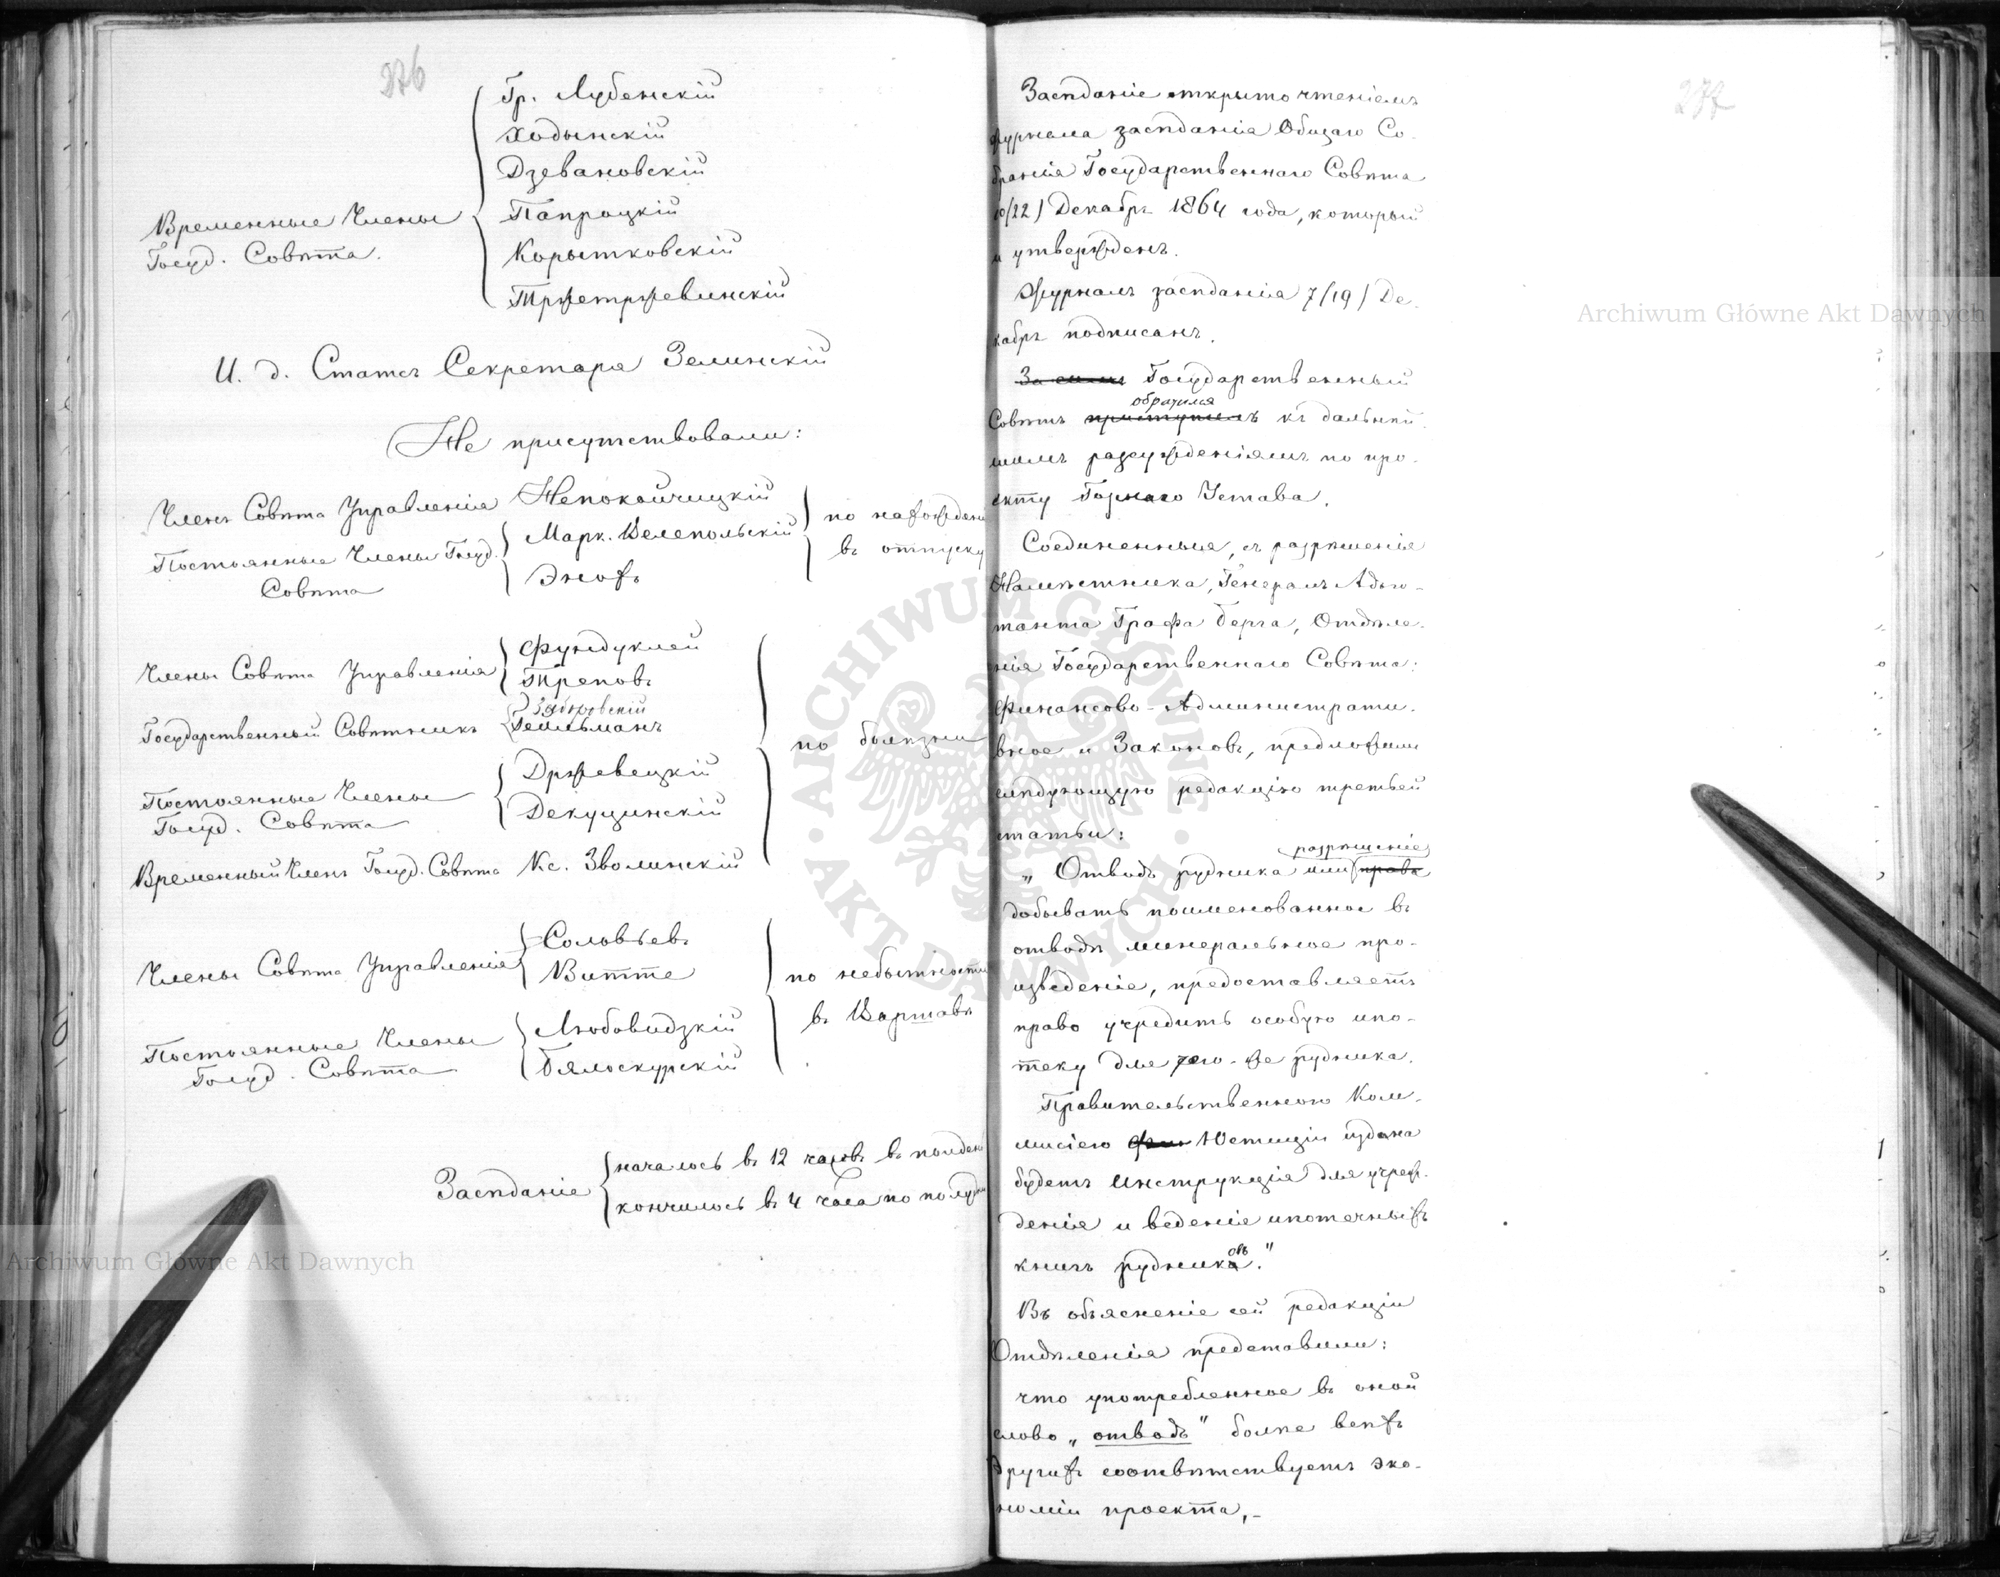 276
Гр. Лубенскій
Ходынскій
Дзевановскій
Папроцкій
Временные Члены
Госуд. Совѣта.
Корытковскій
Тржетржевинскій
И. д. Статсъ Секретаря Зелинскій
Не присутствовали:
Членъ Совѣта Управленія Непокойчицкій
Постоянные Члены Госуд.
Совѣта
Марк. Велепольскій
Энохъ
по нахожден
въ отпуску
Члены Совѣта Управленія
Фундуклей
Треповъ
Государственный Совѣтникъ
Заборовскій
Гейльманъ
по болѣзни
Постоянные Члены
Госуд. Совѣта
Држевецкій
Декуцинскій
Временный Членъ Госуд. Совѣта Кс. Зволинскій
Члены Совѣта Управленія
Соловьевъ
Витте
по небытности
въ Варшавѣ
Постоянные Члены
Госуд. Совѣта
Любовидзкій
Бялоскурскій
Засѣданіе
началось въ 12 часовъ въ полдень
кончилось въ 4 часа по полудни
277
Засѣданіе открыто чтеніемъ
журнала засѣданія Общаго Со-
бранія Государственнаго Совѣта
10/22) Декабря 1864 года, который
и утвержденъ.
Журналъ засѣданія 7/19) Де-
кабря подписанъ.
За симъ Государственный
обратился
Совѣтъ приступилъ къ дальнѣй-
шимъ разсужденіямъ по про-
екту Горнаго Устава.
Соединенныя, съ разрѣшенія
Намѣстника, Генералъ Адъю-
танта Графа Берга, Отдѣле-
нія Государственнаго Совѣта:
Финансово-Администрати-
вное и Законовъ, предложили
слѣдующую редакцію третьей
статьи:
разрѣшеніе
„Отводъ рудника или право
добывать поименованное въ
отводѣ минеральное про-
изведеніе, предоставляетъ
право учредить особую ипо-
теку для того-же рудника.
Правительственною Ком-
мисіею Фин Юстиціи издана
будетъ Инструкція для учреж-
денія и веденіе ипотечныхъ
книгъ рудника.“
овъ
Въ объясненіе сей редакціи
Отдѣленія представили:
что употребленное въ оной
слово „отводъ“ болѣе всѣхъ
другихъ соотвѣтствуетъ эко-
номіи проекта,-
Archiwum Główne Akt Dawnych
Archiwum Główne Akt Dawnych
ARCHIWUM GŁÓWNE · AKT DAWNYCH ·